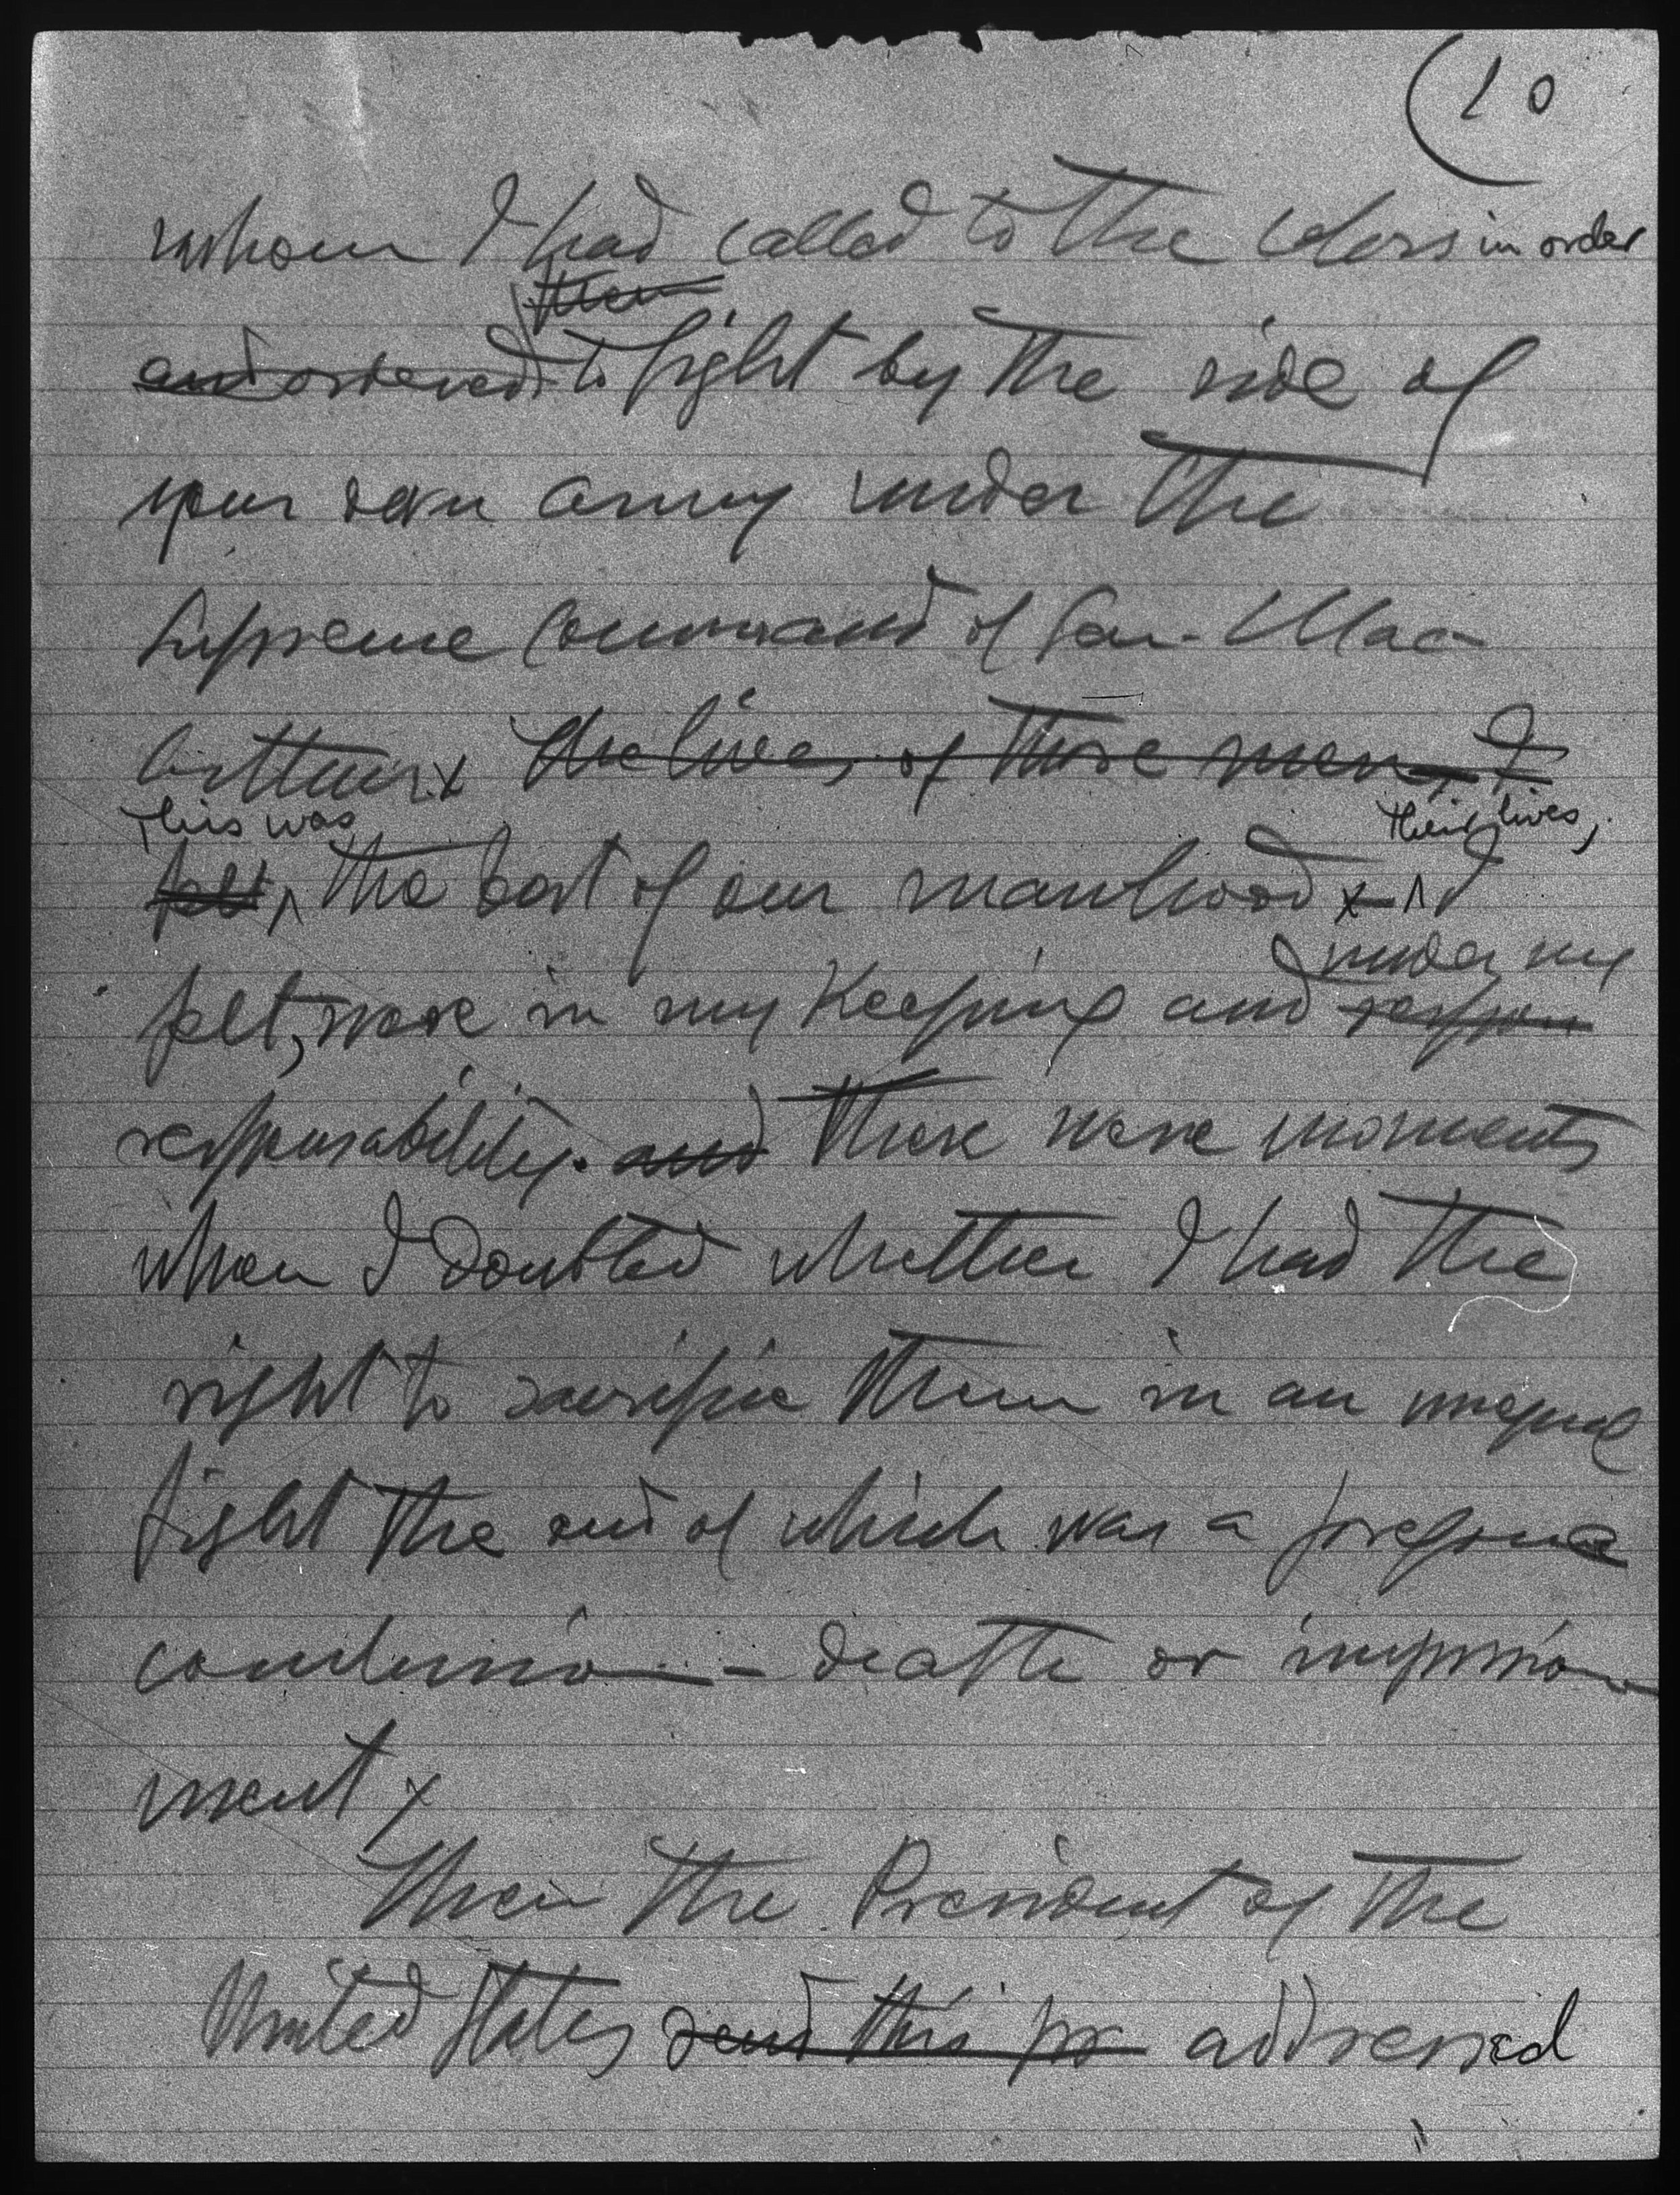 10
whom I had called to the colors in order
them
and ordered to fight by the side of
your own army under the
Supreme Command of Gen. Mac-
Arthur x the lives, of those men, I
This was their lives,
felt, the best of our manhood x I
under my
felt, were in my keeping and respon
responsability. and There were moments
when I doubted whether I had the
right to sacrifice them in an unequal
fight the end of which was a foregone
conclusion - death or imprison
ment x
Then the President of the
United States send this pr addressed